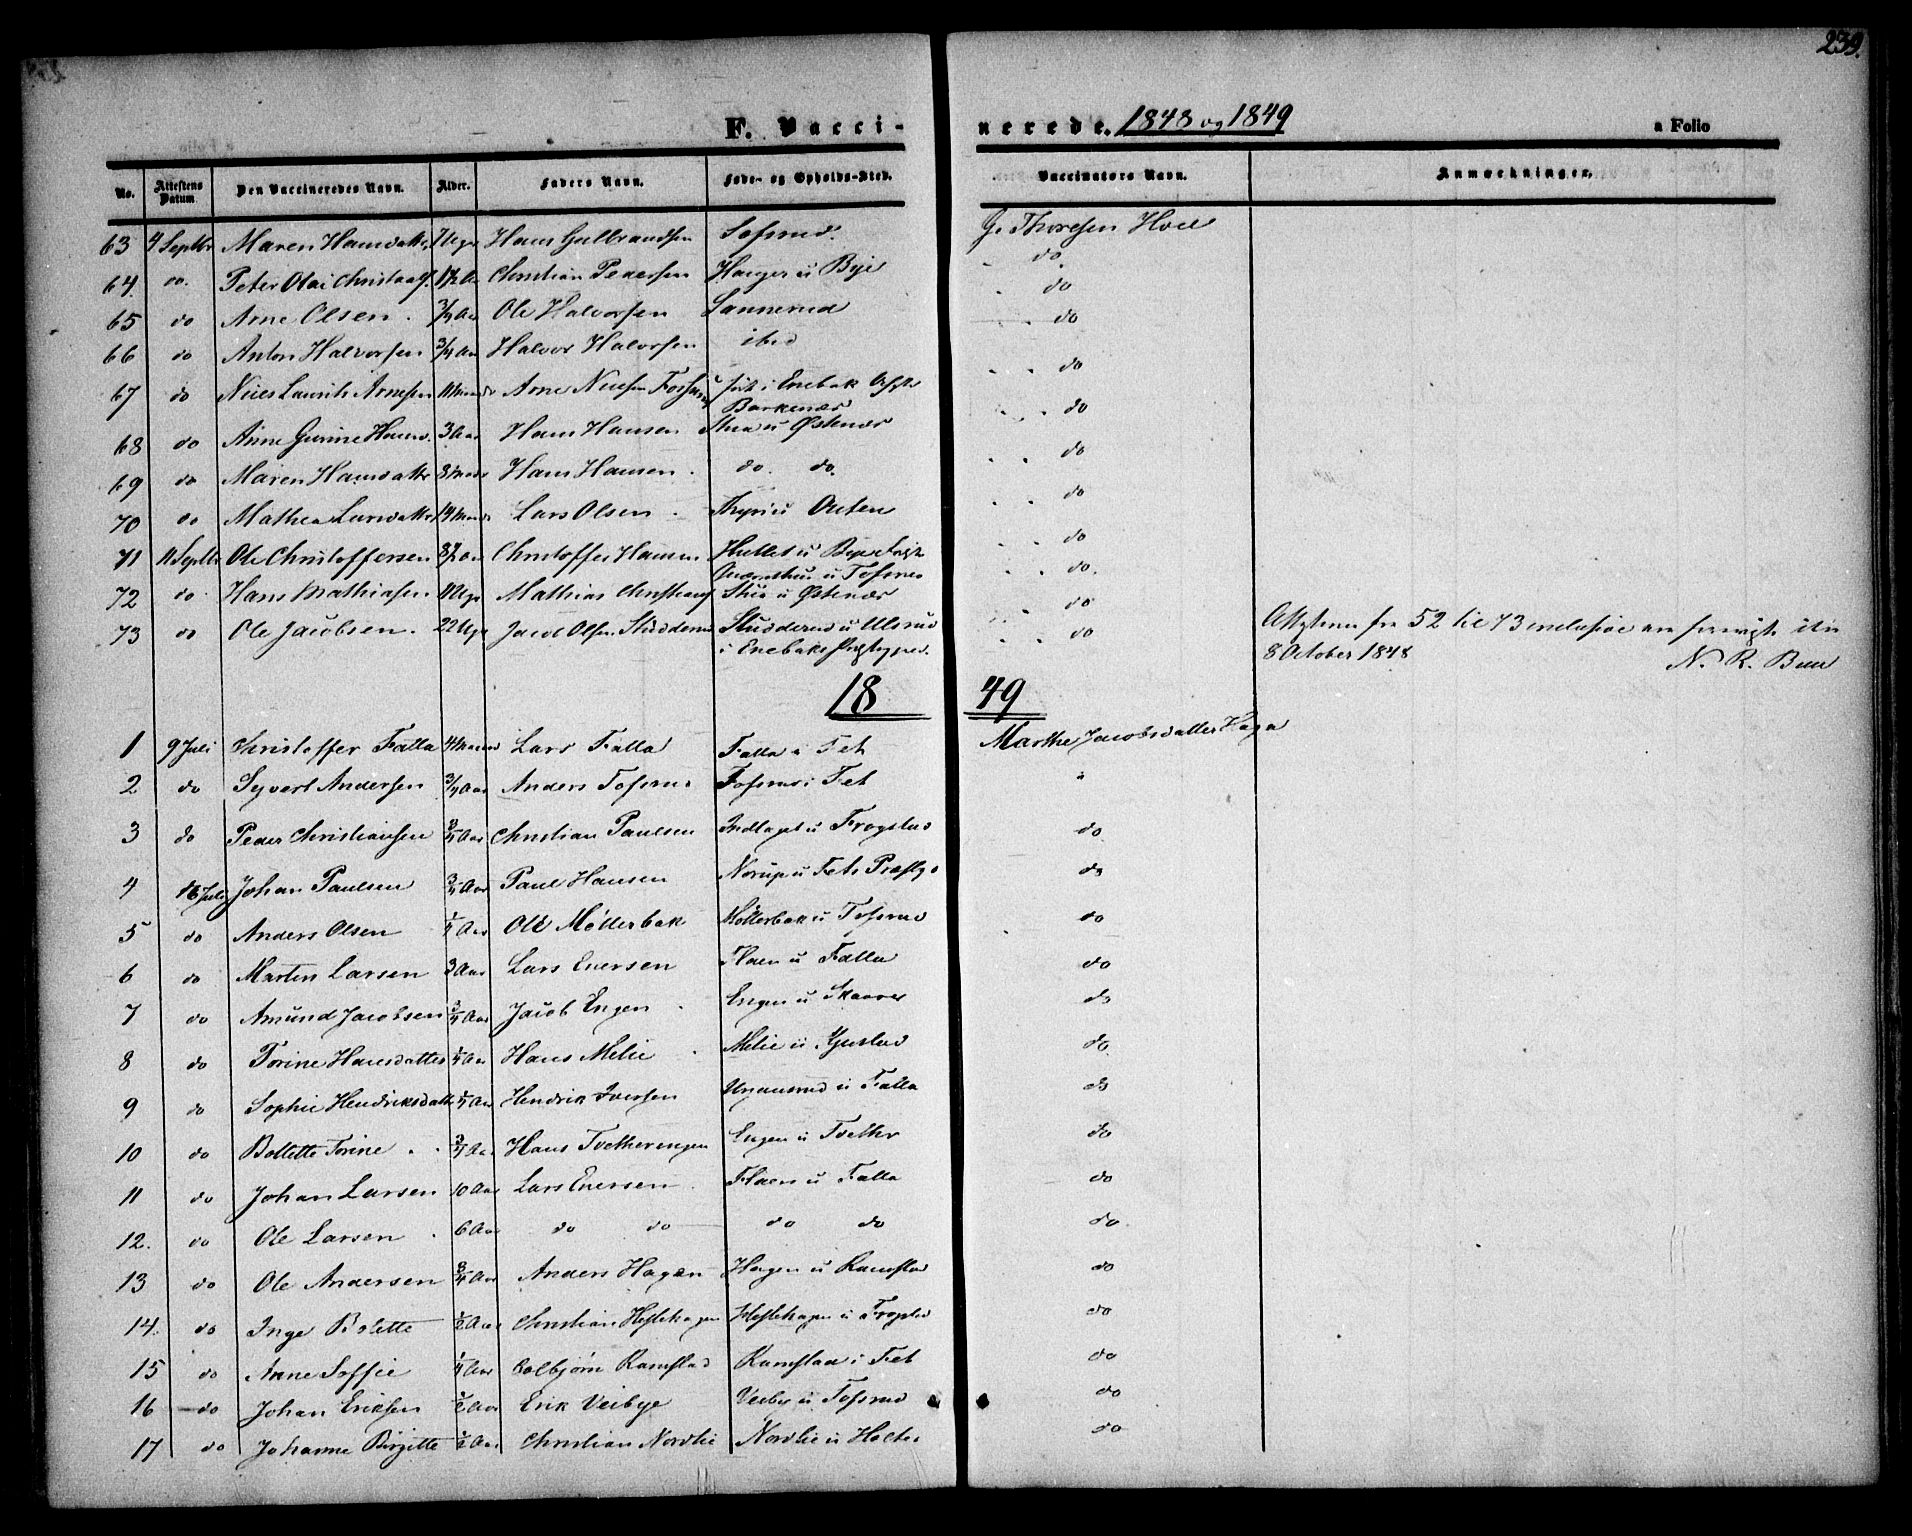 239.
F. Vaccinerede. 1848 og 1849 a Folio
No. Attestens Datum. Den Vaccineredes Navn. Alder. Faders Navn. Føde- og Opholds-Sted. Vaccinators Navn. Anmærkninger.
63 4 Septbr Maren Hansdattr 7 Uger Hans Gulbrandsen Tofsrud. G. Thoresen Hoel
64. do. Peter Olai Christians. 1½ Aar Christian Pedersen Hauger u Bye do
65 do Arne Olsen. 3/4 Aar Ole Halvorsen Sannerud do
66 do Anton Halvorsen 3/4 Aar Halvor Halvorsen ibd do
67 do Niels Laurits Arnesen 11 Maandr Arne Nielsen Forsund født i Enebak
Barkenæs do
68 do Anne Gurine Hansd. 3 Aar Hans Hansen Stua u Østenær do
69 do Maren Hansdattr 8 Maadr Hans Hansen. do. do. do
70 do Mathea Larsdattr 14 Maadr Lars Olsen. Thyri u Outen do
71 11 Septbr Ole Christoffersen Christoffer Hansen Hullet u Bye do
Qværnstuen u Tofsrud do.
72 do. Hans Mathiasen. 11 Uger Mathias Stua u Østenær do
73 do Ole Jacobsen. 22 Uger Jacob Olsen Studderud Studderud u Ulsrud do Attesterne fra 52 til 73 inclusive
i Enebaks Præstegjeld. 8 October 1848 N. R. Bull
1849
1 9 Juli Christoffer Falla 4 Maaned Lars Falla Falla i Fet Marthe Jacobsdatter Haga
2 do Syvert Andersen 3/4 Aar Anders Tofsrud Tofsrud i Fet "
3 do Peder Christiansen 3/4 Aar Christian Paulsen Indlaget u Frogstad do
4 16 Juli Johan Paulsen 3/4 Aar Paul Hansen Norup u Fets Præstgd do
5 do Anders Olsen 1/4 Aar Ole Möllerbak Möllerbak u Tofsrud do
6 do Martin Larsen 3 Aar Lars Enersen Flaen u Falla do
7 do Amund Jacobsen 3/4 Aar Jacob Engen. Engen u Skaarer do
8 do Torine Hansdatter 1/4 Aar Hans Melie. Melie u Gjustad do
9 do Sophie Hendriksdattr 1/4 Aar Hendrik Iversen Ungansrud u Falla do
10 do Bollette Torine.. 3/4 Aar Hans Tvetherengen Engen u Tvethr do
11 do Johan Larsen 10 Aar Lars Enersen. Flaen u Falla do
12. do Ole Larsen. 6 Aar do do do do do.
13 do Ole Andersen 3/4 Aar Anders Hagen Hagen u Ramstad do
14. do Inge Bolette 1/2 Aar Christian Heslehagen Heslehagen u Frogstad do
15 do Anne Soffie 1/4 Aar Colbjørn Ramstad Ramstad i Fet do
16 do Johan Eriksen 1/2 Aar Erik Veibye Veibye u Tofsrud do
17 do Johanne Birgitte 1/2 Aar Christian Nordlie Nordlie u Holter do